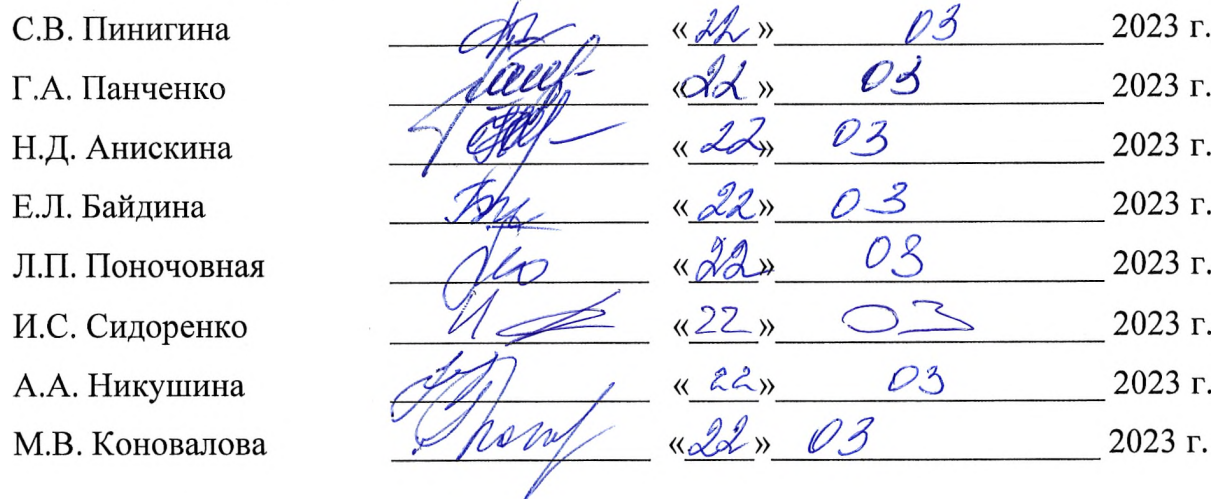 С.В. Пинигина «22» 03 2023 г.
Г.А. Панченко «22» 03 2023 г.
Н.Д. Анискина «22» 03 2023 г.
Е.Л. Байдина «22» 03 2023 г.
Л.П. Поночовная «22» 03 2023 г.
И.С. Сидоренко «22» 03 2023 г.
А.А. Никушина «22» 03 2023 г.
М.В. Коновалова «22» 03 2023 г.